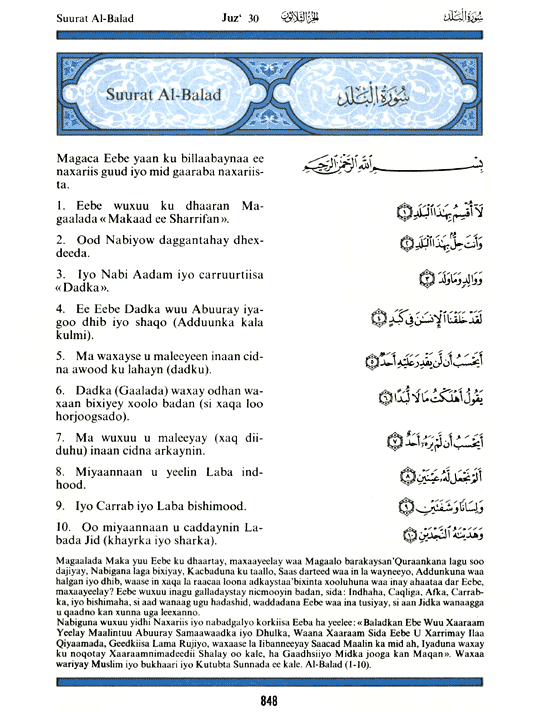 Suurat Al-Balad Juz' 30 الجزء الثلاثون سُورَةُ الْبَلَدِ
Suurat Al-Balad سُورَةُ الْبَلَدِ
Magaca Eebe yaan ku billaabaynaa ee
naxariis guud iyo mid gaaraba naxariis-
ta.
بِسْمِ اللَّهِ الرَّحْمَٰنِ الرَّحِيمِ
1. Eebe wuxuu ku dhaaran Ma-
gaalada «Makaad ee Sharrifan».
لَآ أُقْسِمُ بِهَٰذَا ٱلْبَلَدِ ١
2. Ood Nabiyow daggantahay dhex-
deeda.
وَأَنتَ حِلٌّۢ بِهَٰذَا ٱلْبَلَدِ ٢
3. Iyo Nabi Aadam iyo carruurtiisa
«Dadka».
وَوَالِدٍ وَمَا وَلَدَ ٣
4. Ee Eebe Dadka wuu Abuuray iya-
goo dhib iyo shaqo (Adduunka kala
kulmi).
لَقَدْ خَلَقْنَا ٱلْإِنسَٰنَ فِى كَبَدٍ ٤
5. Ma waxayse u maleeyeen inaan cid-
na awood ku lahayn (dadku).
أَيَحْسَبُ أَن لَّن يَقْدِرَ عَلَيْهِ أَحَدٌ ٥
6. Dadka (Gaalada) waxay odhan wa-
xaan bixiyey xoolo badan (si xaqa loo
horjoogsado).
يَقُولُ أَهْلَكْتُ مَالًا لُّبَدًا ٦
7. Ma wuxuu u maleeyay (xaq dii-
duhu) inaan cidna arkaynin.
أَيَحْسَبُ أَن لَّمْ يَرَهُۥٓ أَحَدٌ ٧
8. Miyaannaan u yeelin Laba ind-
hood.
أَلَمْ نَجْعَل لَّهُۥ عَيْنَيْنِ ٨
9. Iyo Carrab iyo Laba bishimood.
وَلِسَانًا وَشَفَتَيْنِ ٩
10. Oo miyaannaan u caddaynin La-
bada Jid (khayrka iyo sharka).
وَهَدَيْنَٰهُ ٱلنَّجْدَيْنِ ١٠
Magaalada Maka yuu Eebe ku dhaartay, maxaayeelay waa Magaalo barakaysan'Quraankana lagu soo
dajiyay, Nabigana laga bixiyay, Kacbaduna ku taallo, Saas darteed waa in la wayneeyo, Addunkuna waa
halgan iyo dhib, waase in xaqa la raacaa loona adkaystaa'bixinta xooluhuna waa inay ahaataa dar Eebe,
maxaayeelay? Eebe wuxuu inagu galladaystay nicmooyin badan, sida: Indhaha, Caqliga, Afka, Carrab-
ka, iyo bishimaha, si aad wanaag ugu hadashid, waddadana Eebe waa ina tusiyay, si aan Jidka wanaagga
u qaadno kan xunna uga leexanno.
Nabiguna wuxuu yidhi Naxariis iyo nabadgalyo korkiisa Eeba ha yeelee: «Baladkan Ebe Wuu Xaaraam
Yeelay Maalintuu Abuuray Samaawaadka iyo Dhulka, Waana Xaaraam Sida Eebe U Xarrimay Ilaa
Qiyaamada, Geedkiisa Lama Rujiyo, waxaase la Iibanneeyay Saacad Maalin ka mid ah, Iyaduna waxay
ku noqotay Xaaraamnimadeedii Shalay oo kale, ha Gaadhsiiyo Midka jooga kan Maqan». Waxaa
wariyay Muslim iyo bukhaari iyo Kutubta Sunnada ee kale. Al-Balad (1-10).
848